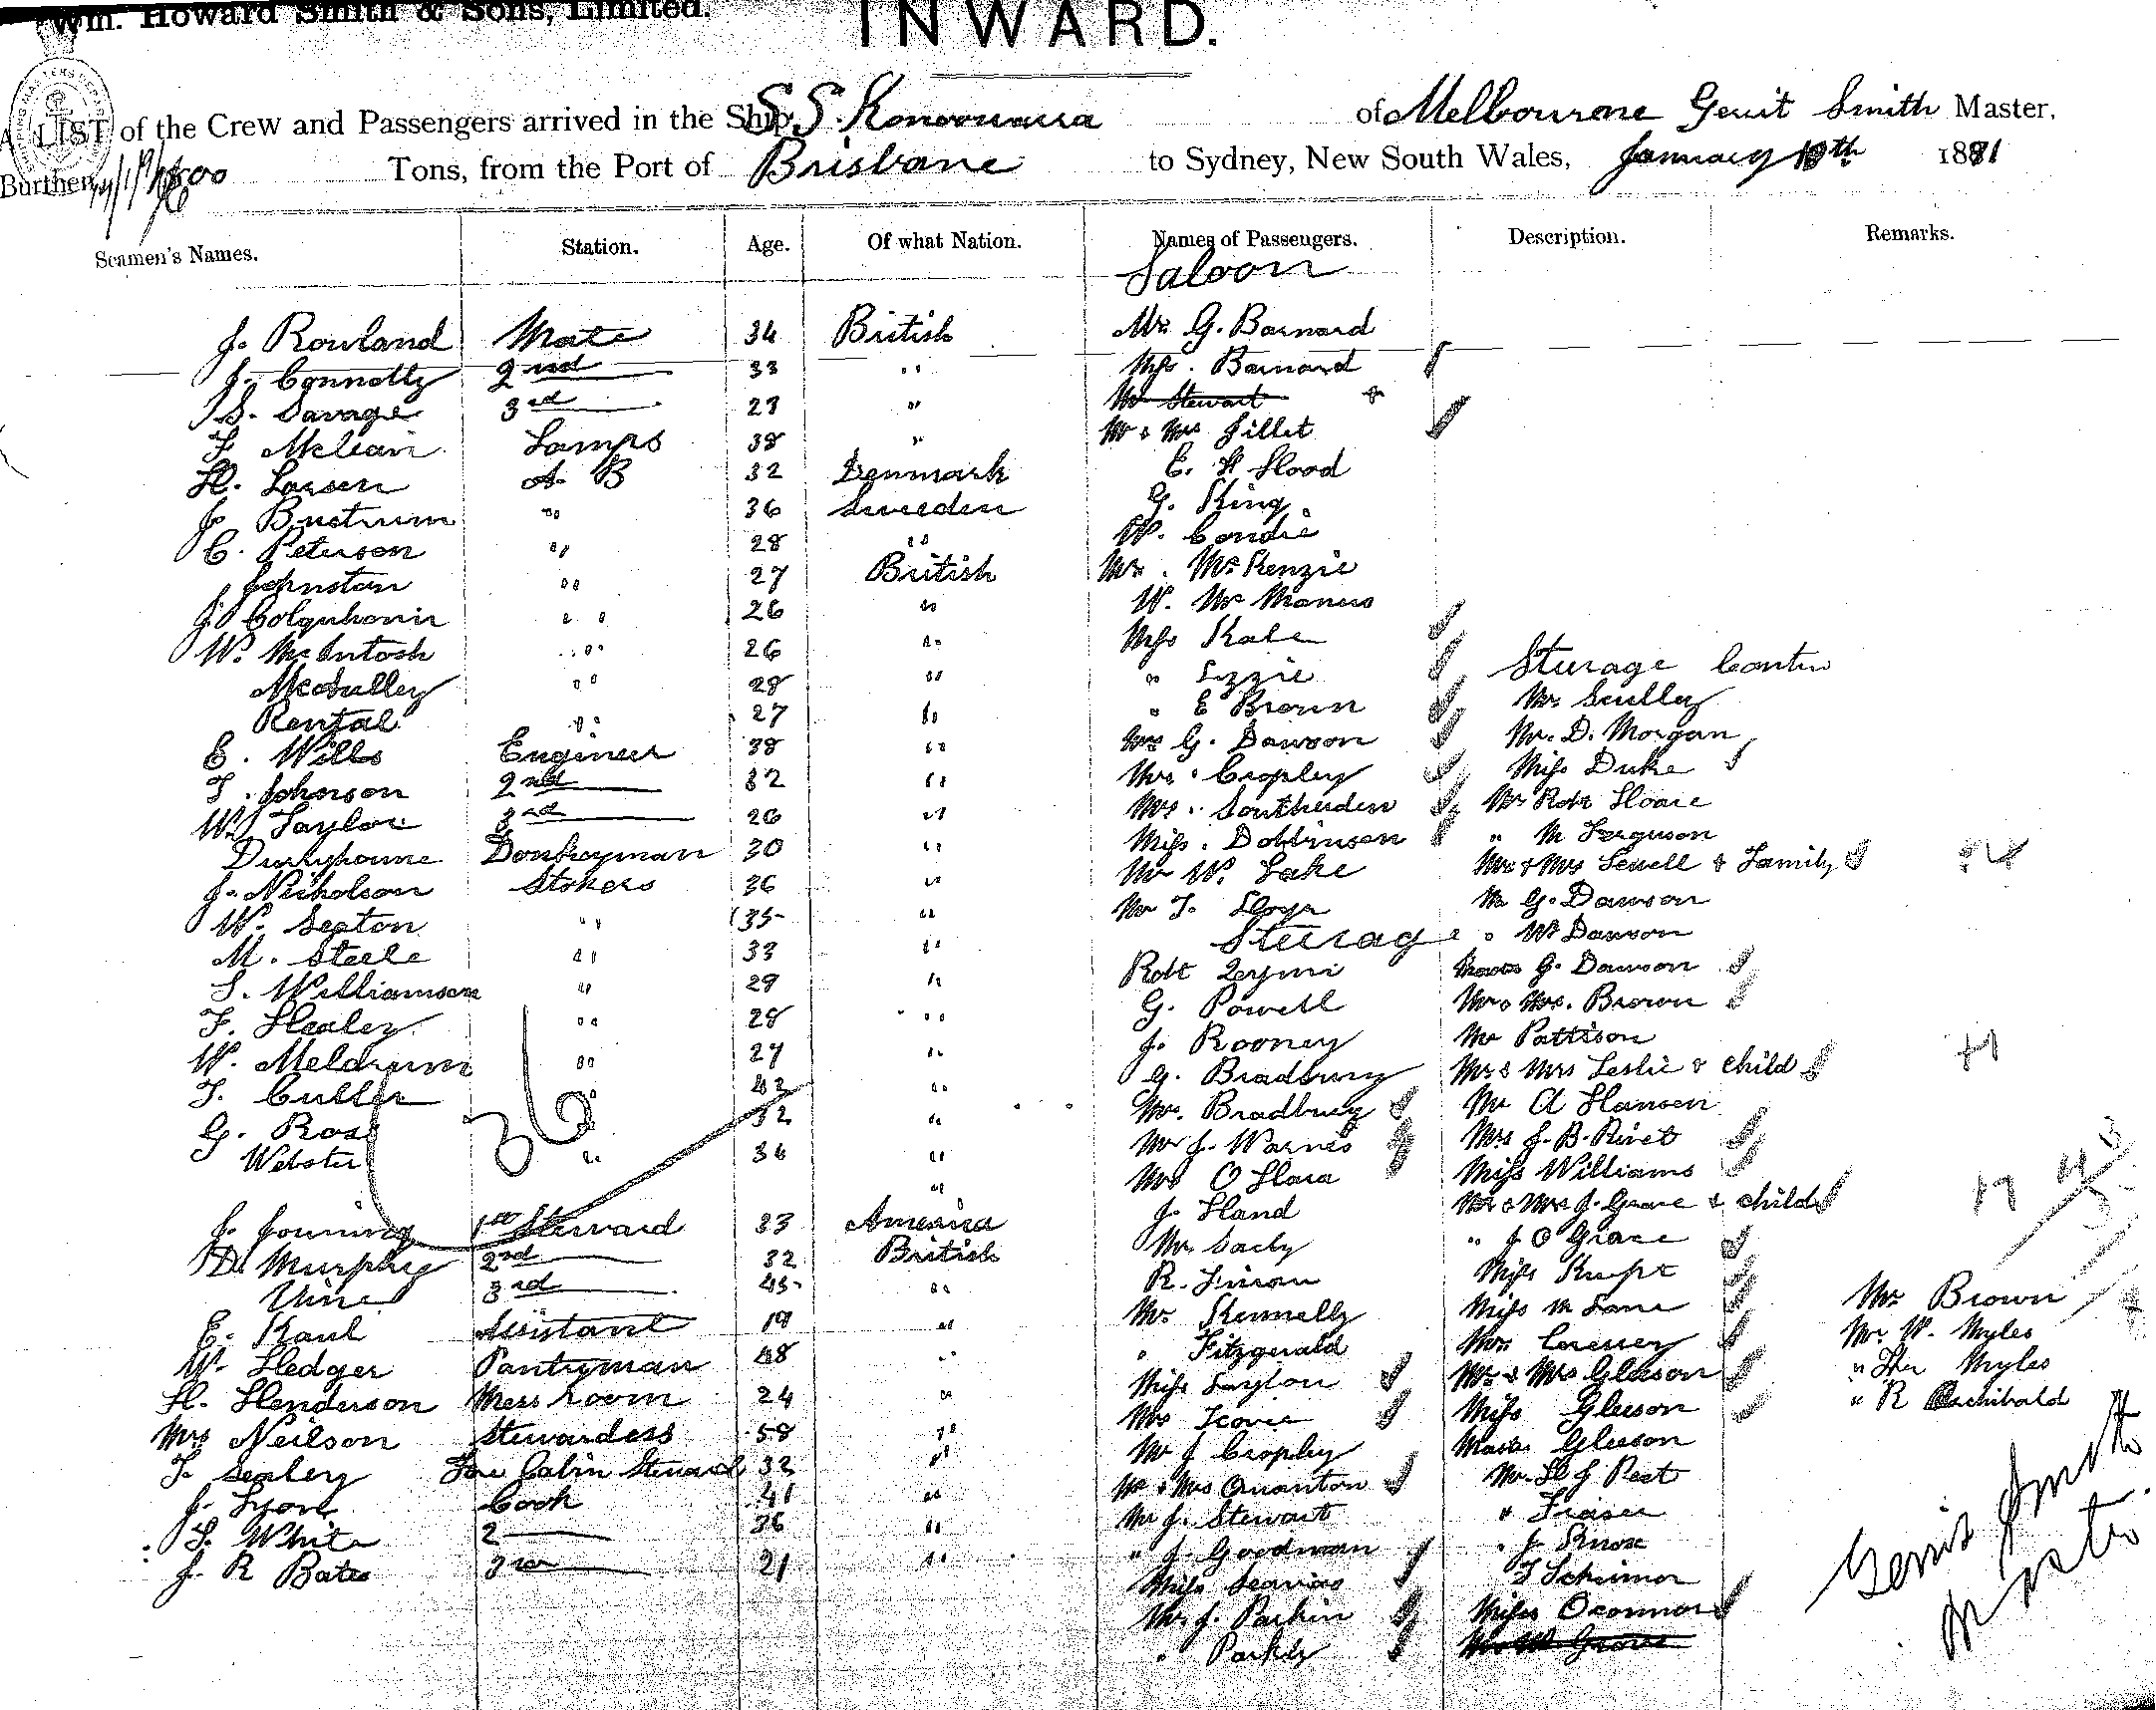 Wm. Howard Smith & Sons, Limited.
INWARD.
A LIST of the Crew and Passengers arrived in the Ship S.S. of Melbourne Gerrit Smith Master,
Burthen Tons, from the Port of Brisbane to Sydney, New South Wales, January 1891
Seamen's Names. Station. Age. Of what Nation. Names of Passengers. Description. Remarks.
Saloon
J. Rowland Mate 34 British Mr. G. Barnard
J. Connolly 2nd 33 " Miss. Barnard
S. Savage 3rd 23 " Mr Stewart
F McLean Lamps 38 " Mr & Mrs Gillet
H. Larsen A. B 32 Denmark E. H Hood
J. 36 Sweden G. King
C. Peterson " 28 " W. Condie
Johnston " 27 British Mr. McKenzie
J. Colquhoun " 26 " W. Mc Manus
W. McIntosh " 26 " Miss Kate
" " 28 " " Lizzie Steerage Contin
Rental " 27 " " E Brown Mr Scully
E. Wills Engineer 38 " Mrs G. Dawson Mr. D. Morgan
T. Johnson 2nd 32 " Mrs. Cropley Miss Duke
W. Taylor 3rd 26 " Mrs. Southerden Mr Robt Hoare
Donkeyman 30 " Miss. Dobbinson " M Ferguson
J. Nicholson Stokers 36 " Mr W. Lake Mr & Mrs Sewell & Family
W. Sexton " 35 " Mr T. G. Dawson
M. Steele " 33 " Steerage " W Dawson
S. Williamson " 29 " Robt G. Dawson
F. Healey " 28 " G. Powell Mr & Mrs. Brown
W. Meldrum " 27 " J. Rooney Mr Pattison
T. Cutler " " G. Bradbury Mr & Mrs Leslie & child
G. Ross " 32 " Mrs. Bradbury Mr A Hansen
Webster " 34 " Mr J. Warnes Mrs J. B. Rivet
36 " Mrs O Hara Miss Williams
J. 1st Steward 33 America J. Hand Mr & Mrs J. Grace & child
D. Murphy 2nd 32 British Mr " J O Grace
Vine 3rd 45 " R. Miss
E. Kaul Assistant 19 " Mr. Kennelly Miss M Lane Mr Brown
W. Hedger Pantryman 48 " " Fitzgerald Mrs Mr. W. Myles
H. Henderson Mess room 24 " Miss Mr & Mrs Gleeson " Myles
Mrs Neilson Stewardess 58 " Mrs Miss Gleeson " R Archibald
T. Sealey Fore Cabin Steward 32 " Mr J Cropley Master Gleeson
J. Lyon Cook 41 " Mr & Mrs Quanton Mr. H J Pest
S. White 2 36 " Mr J. Stewart " Fraser
J. R Bates 3rd 21 " " J. Goodman " J. Knox
Miss
Mr. J. Parkin Miss Oconnor
" Grove
Gerrit Smith
Master